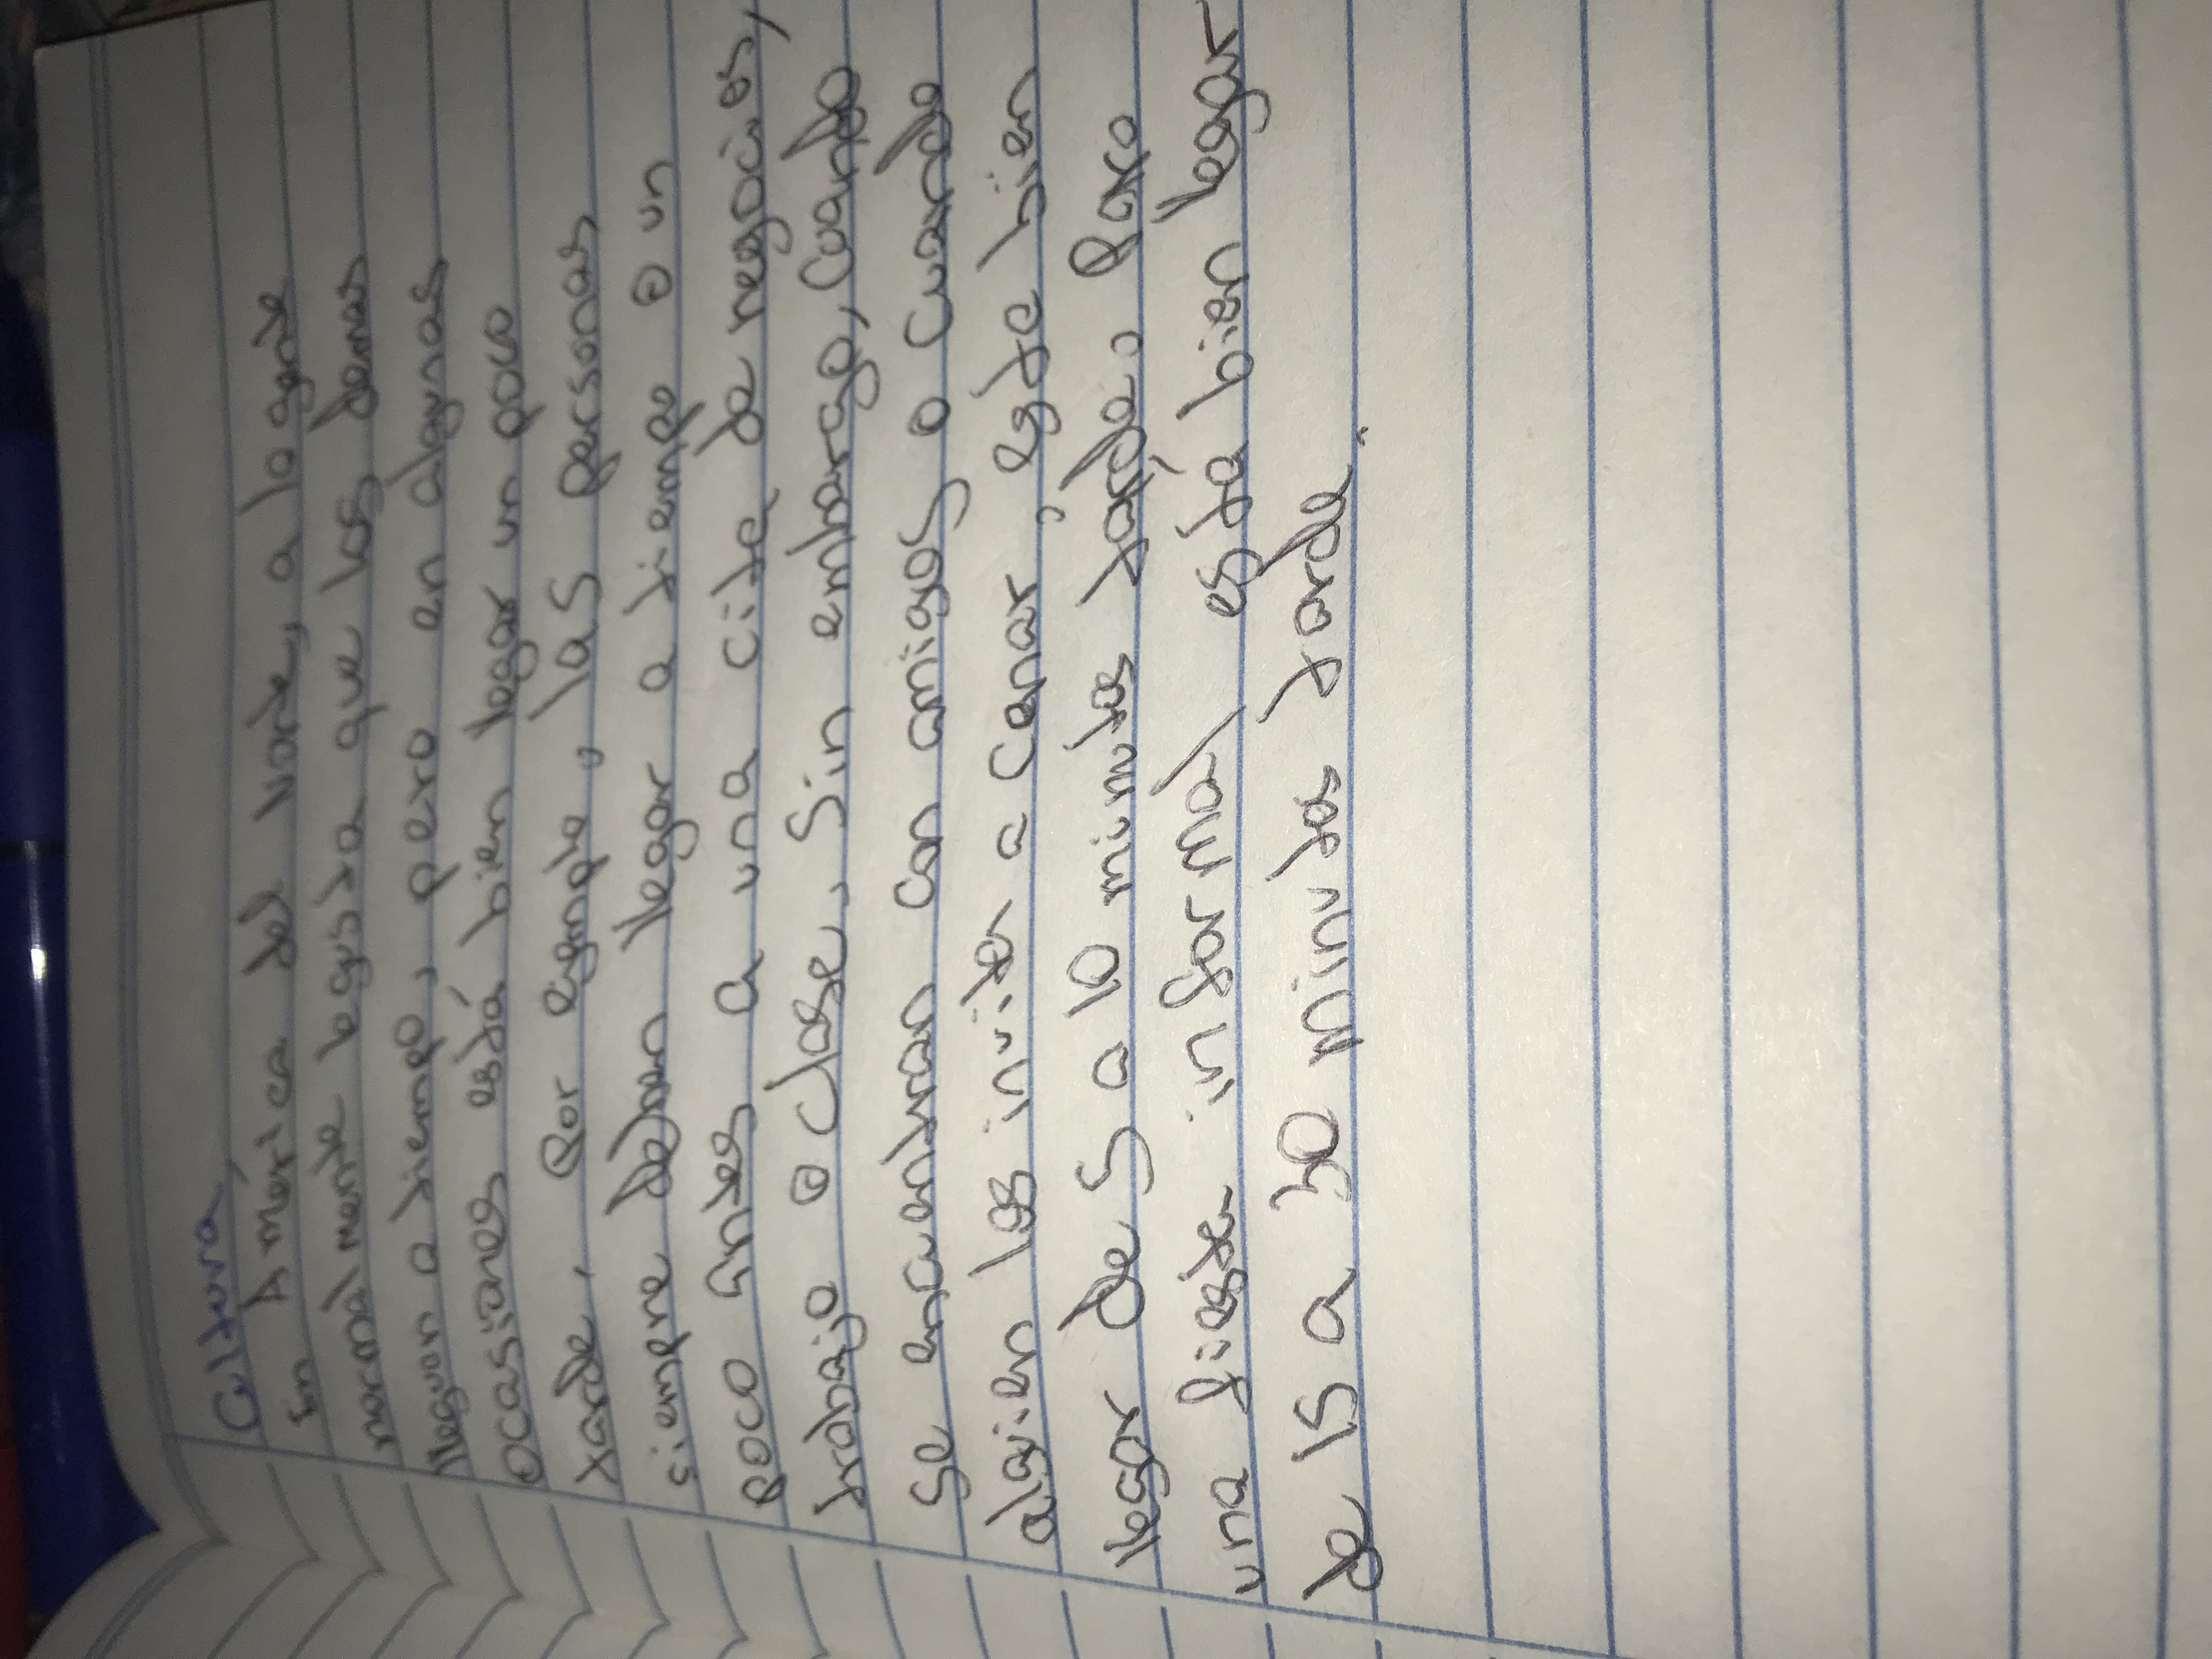 Cultura
En América del Norte, a la gente
normalmente le gusta que los demas
lleguen a tiempo, pero en algunas
ocasiones está bien llegar un poco
tarde. Por ejemplo, las personas
siempre deben llegar a tiempo o un
poco antes a una cita de negocios,
trabajo o clase. Sin embargo, cuando
se encuentran con amigos o cuando
alguien los invita a cenar, esta bien
llegar de 5 a 10 minutos tarde. Para
una fiesta informal está bien llegar
de 15 a 30 minutos tarde.